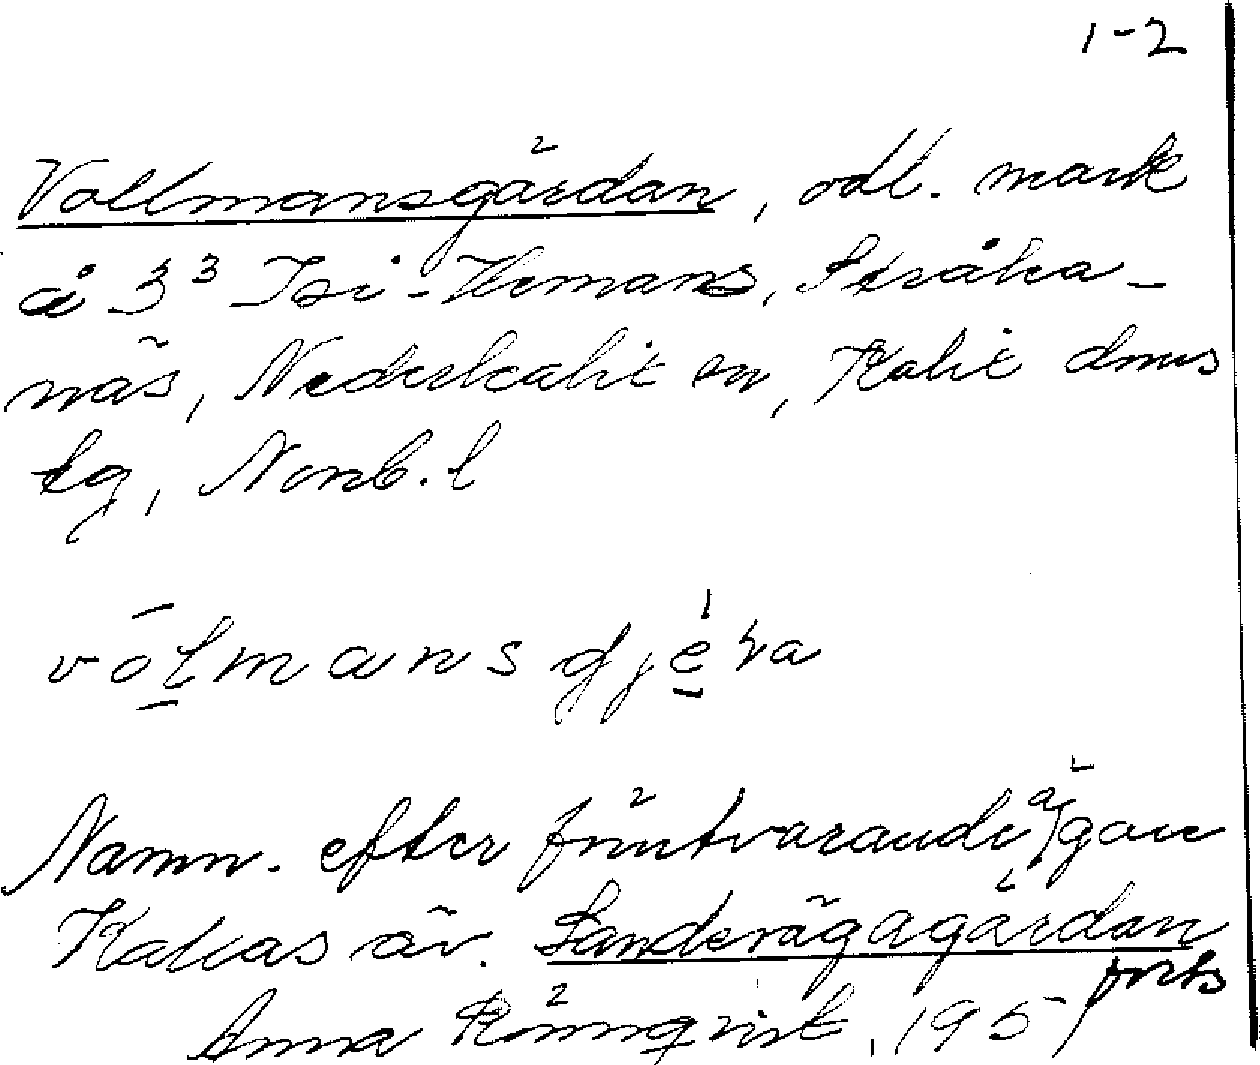 1-2
Vollmansgärdan, odl. mark
å 3³ Isi-Hemans, Stråka-
näs, Nederkalix sn, Kalix dms
tg, Nonb. l
vólmans gjéra
Namn. efter förutvarande ägare
Kallas äv. Landsvägagärdan
forts
Anna Rönnqvist, 1951